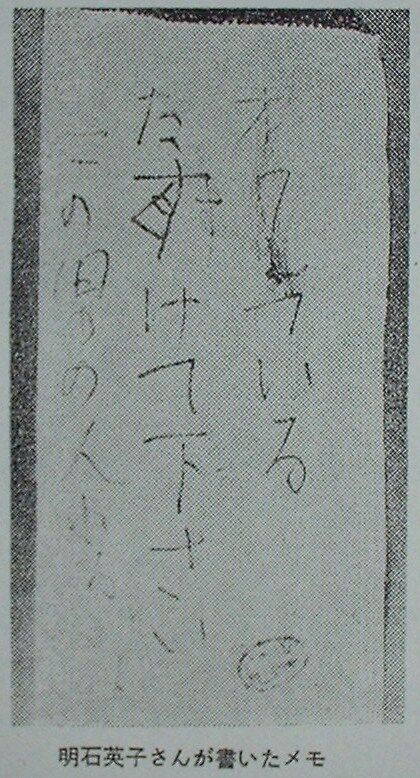 オワ っている
たすけて下さい
この男の人
明石英子さんが書いたメモ